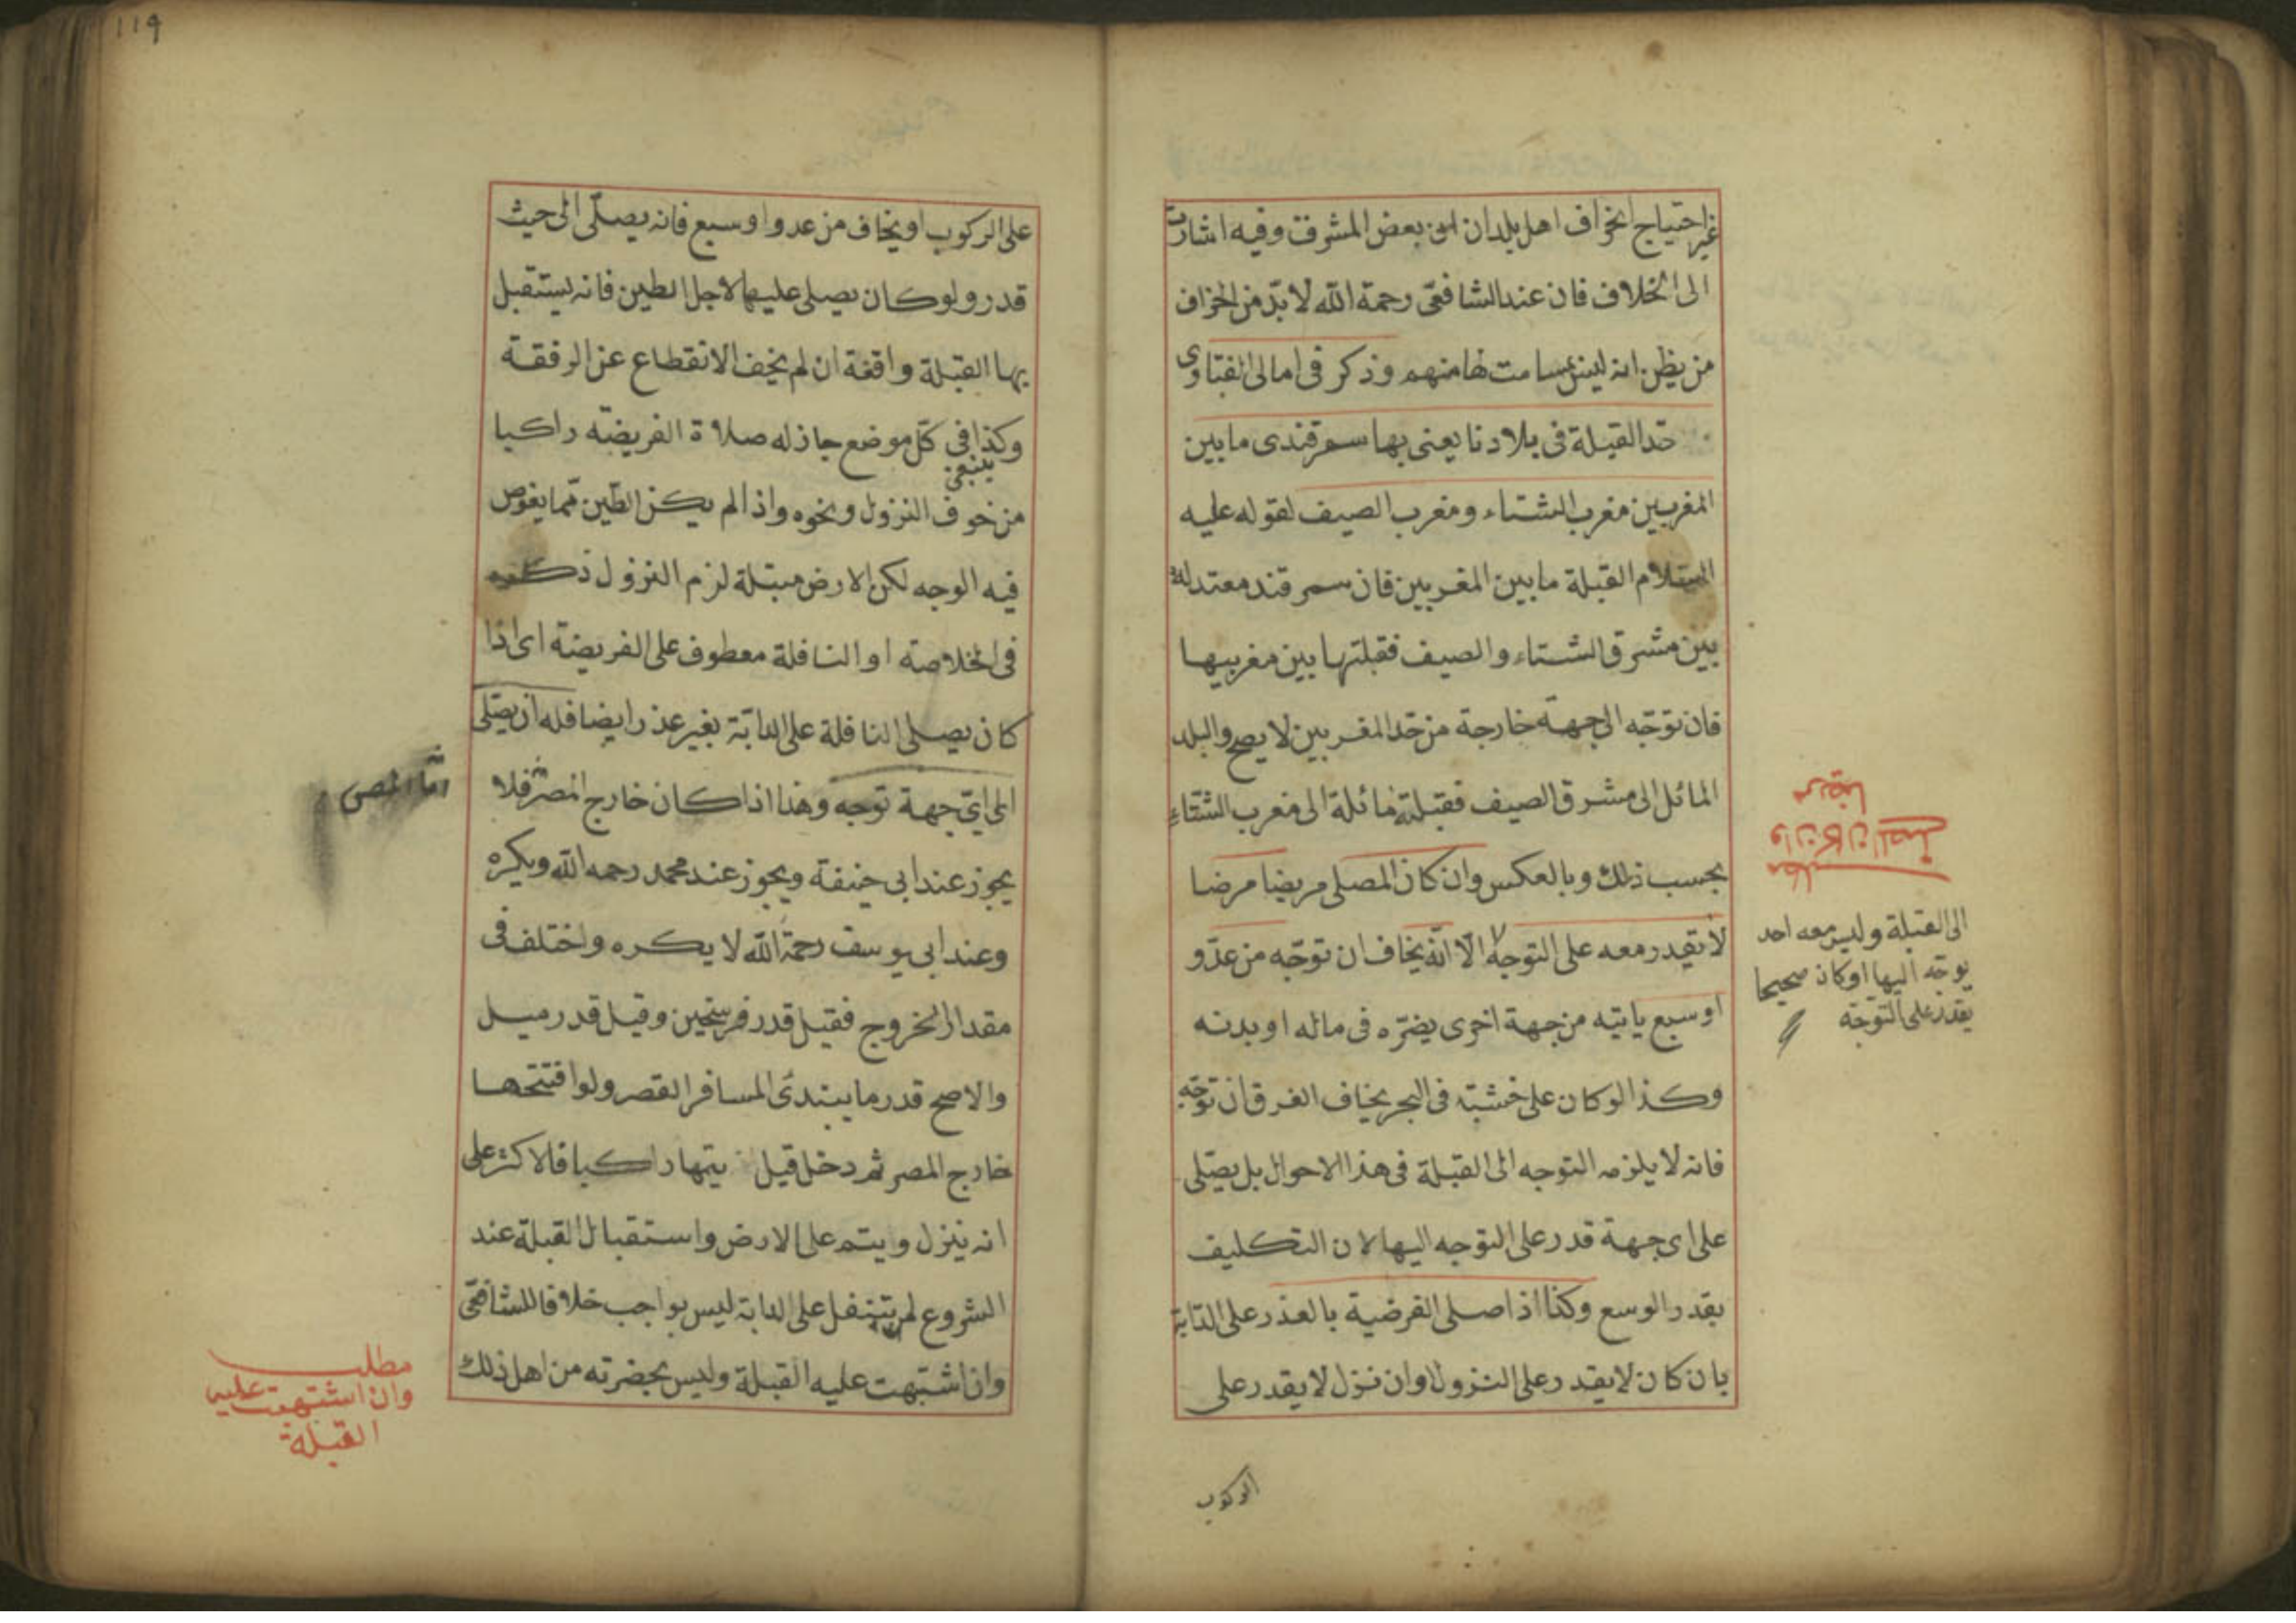 غير احتياج انحراف اهل بلدان الى بعض المشرق وفيه اشارت
الى الخلاف فان عند الشافعى رحمة الله لا بدّ من انحراف
من يظن انه ليس بمسامت لها منهم وذكر فى امالى الفتاوى
حدّ القبلة فى بلادنا يعنى بها سمرقندى ما بين
المغربين مغرب الشتاء ومغرب الصيف لقوله عليه
السلام القبلة ما بين المغربين فان سمرقند معتدلة
بين مشرق الشتاء والصيف فقبلتها بين مغربيها
فان توجّه الى جهة خارجة من حدّ المغربين لا يصح والبلد
المائل الى مشرق الصيف فقبلته مائلة الى مغرب الشتاء
بحسب ذلك وبالعكس وان كان المصلى مريضا مرضا
لا يقدر معه على التوجه الّا انّه يخاف ان توجّه من عدّو
او سبع ياتيه من جهة اخرى يضرّه فى ماله او بدنه
وكذا لو كان على خشبة فى البحر يخاف الغرق ان توجّه
فانه لا يلزمه التوجه الى القبلة فى هذا الاحوال بل يصّلى
على اى جهة قدر على التوجه اليها لان التكليف
بقدر الوسع وكذا اذا صلى الفرضية بالعذر على الدّابة
بان كان لا يقدر على النزول او ان نزل لا يقدر على
الركوب
مطلب
وان كان المصلى
مريضا
الى القبلة وليس معه احد
يوجّه اليها او كان صحيحا
يقدر على التوجّه
119
على الركوب او يخاف من عدو او سبع فانه يصلّى الى حيث
قدر ولو كان يصلى عليها لاجل الطين فانه يستقبل
بها القبلة واقفة ان لم يخف الانقطاع عن الرفقة
وكذا فى كلّ موضع جاز له صلاة الفريضة راكبا
ينبغى
من خوف النزول ونحوه واذا لم يكن الطّين ممّا يغوص
فيه الوجه لكن الارض مبتلة لزم النزول ذكره
فى الخلاصة او النافلة معطوف على الفريضة اى اذا
كان يصلى النافلة على الدابّة بغير عذر ايضا فله ان يصّلى
الى اىّ جهة توجه وهذا اذا كان خارج المصر فلا
يجوز عند ابى حنيفة ويجوز عند محمد رحمه الله ويكره
وعند ابى يوسف رحمة الله لا يكره واختلف فى
مقدار الخروج فقيل قدر فرسخين وقيل قدر ميل
والاصح قدر ما يبتدئ المسافر القصر ولو افتتحها
خارج المصر ثم دخل قيل يتمها راكبا فالاكثر على
انه ينزل ويتم على الارض واستقبال القبلة عند
الشروع لمن يتنفل على الدابة ليس بواجب خلافا للشافعى
وان اشتبهت عليه القبلة وليس بحضرته من اهل ذلك
امّا المصر
مطلب
وان اشتبهت عليه
القبلة